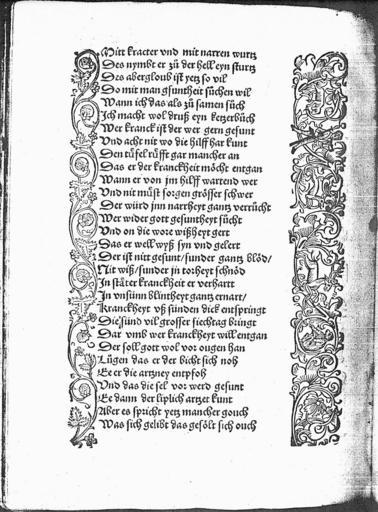 Mitt kraeter vnd mit narren wurtz
Des nymbt er zů der hell eyn sturtz
Des abergloub ist yetz so vil
Do mit man gsuntheit sůchen wil
Wann ich das als zů samen sůch
Ich macht wol druß eyn ketzerbůch
Wer kranck ist der wer gern gesunt
Vnd acht nit wo die hilff har kunt
Den tüfel rüfft gar mancher an
Das er der kranckheit möcht entgan
Wann er von jm hilff wartend wer
Vnd nit můst sorgen grösser schwer
Der würd jnn narrheyt gantz verrücht
Wer wider gott gesuntheyt sücht
Vnd on die wore wißheyt gert
Das er well wyß syn vnd gelert
Der ist nitt gesunt/sunder gantz blöd/
Nit wiß/sunder jn torheyt schnöd
In stäter kranckheit er verharrt
In vnsünn blintheyt gantz ernart/
Kranckheyt vß sünden dick entspringt
Die sünd vil grosser siechtag bringt
Dar vmb wer kranckheyt will entgan
Der soll gott wol vor ougen han
Lůgen das er der bicht sich noh
Ee er die artzney entpfoh
Vnd das die sel vor werd gesunt
Ee dann der liplich artzet kunt
Aber es spricht yetz mancher gouch
Was sich gelibt das gesölt sich ouch